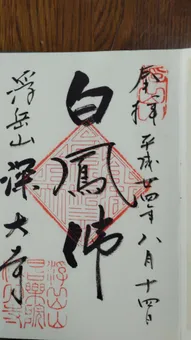 登拝 平成廿四年八月十四日
白鳳佛
浮岳山 深大寺